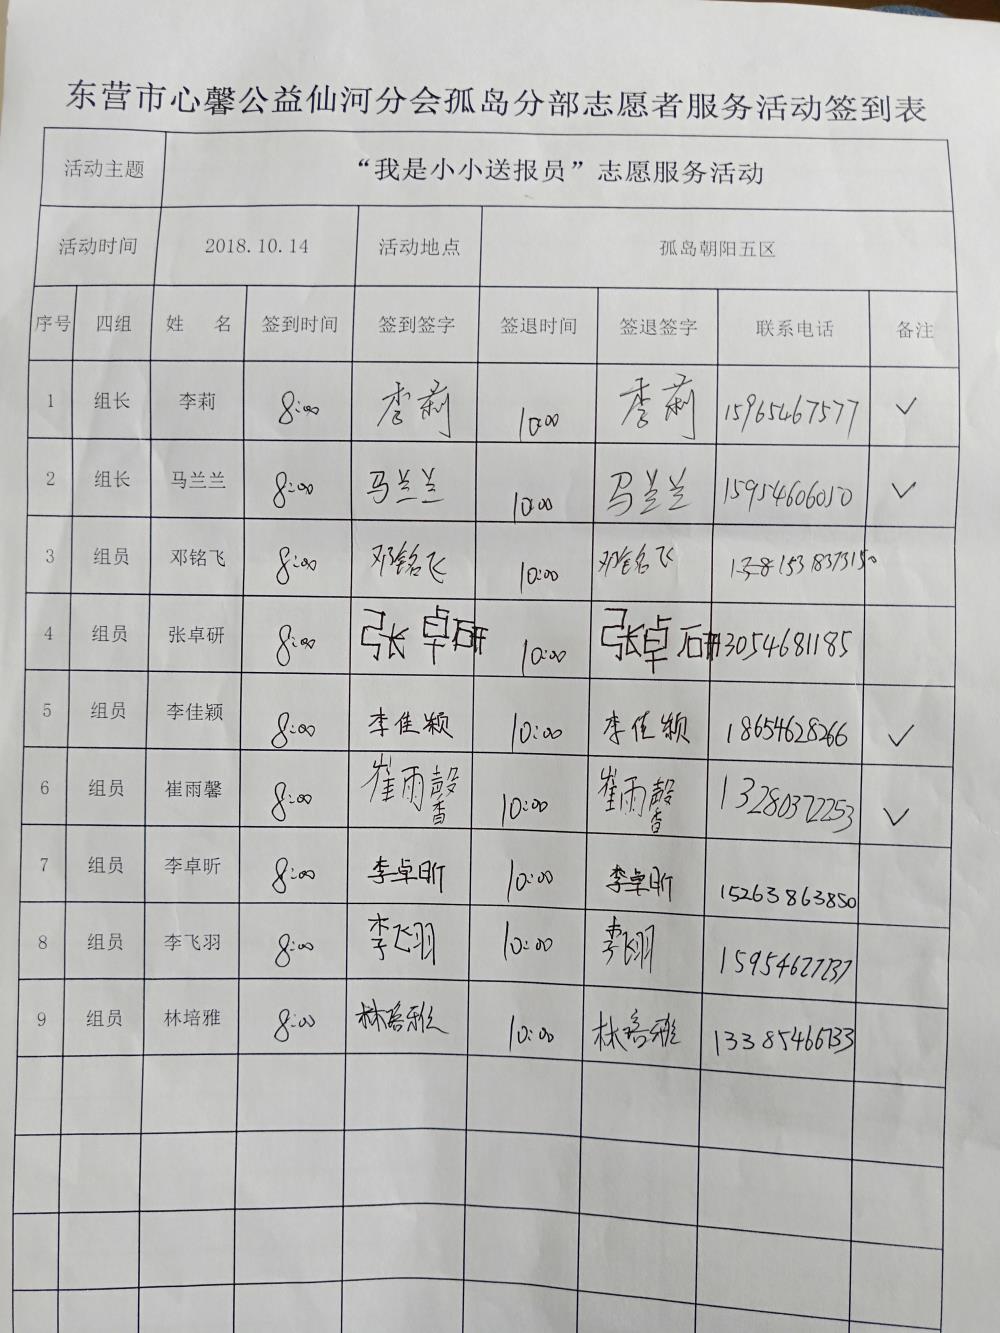 东营市心馨公益仙河分会孤岛分部志愿者服务活动签到表
活动主题 “我是小小送报员”志愿服务活动
活动时间 2018.10.14 活动地点 孤岛朝阳五区
序号 四组 姓 名 签到时间 签到签字 签退时间 签退签字 联系电话 备注
1 组长 李莉 8:00 李莉 10:00 李莉 15965467577 ✓
2 组长 马兰兰 8:00 马兰兰 10:00 马兰兰 15954606050 ✓
3 组员 邓铭飞 8:00 邓铭飞 10:00 邓铭飞
4 组员 张卓研 8:00 张卓研 10:00 张卓研 3054681185
5 组员 李佳颖 8:00 李佳颖 10:00 李佳颖 18654628266 ✓
6 组员 崔雨馨 8:00 崔雨馨 10:00 崔雨馨 13280372253 ✓
7 组员 李卓昕 8:00 李卓昕 10:00 李卓昕 15263863850
8 组员 李飞羽 8:00 李飞羽 10:00 李飞羽 15954627737
9 组员 林培雅 8:00 林培雅 10:00 林培雅 13385466733